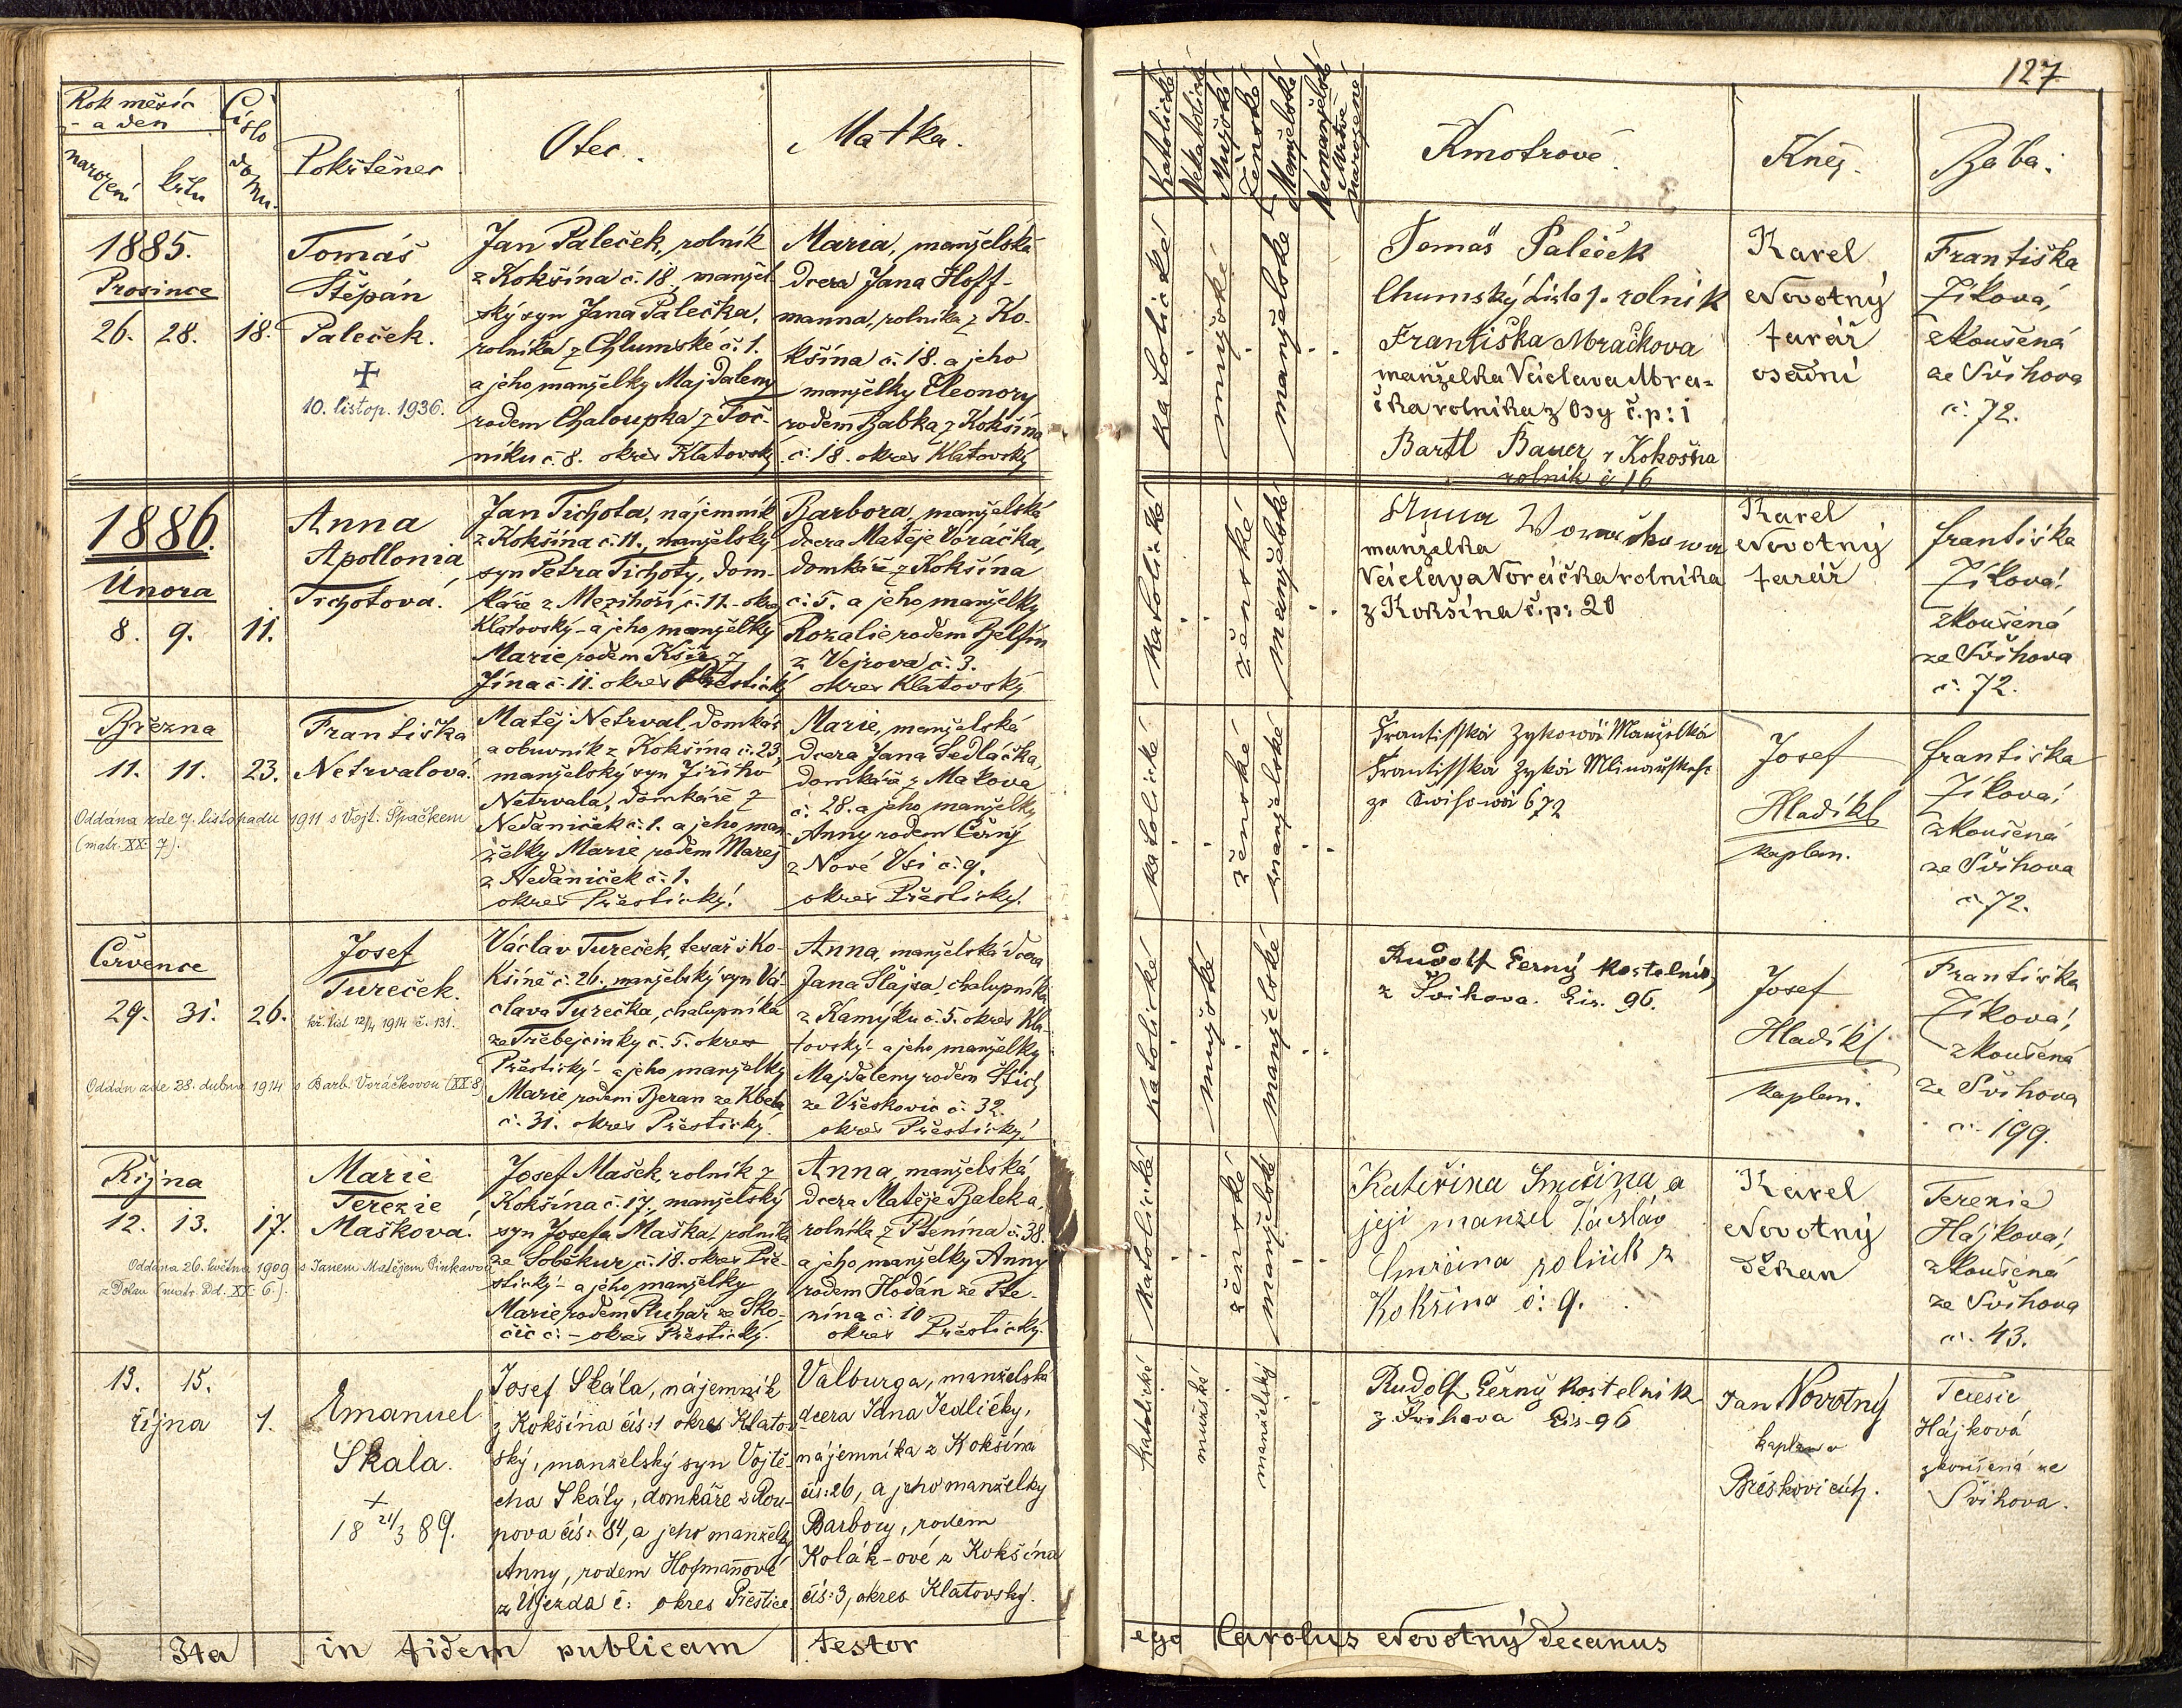 127
Rok měsíc
- a den
narození
křtu
Číslo
domu.
Pokřtěnec
Otec.
Matka.
Katolické
Nekatolické
Mužské
Ženské
Manželské
Nemanželské
Mrtvě
narozené
Kmotrové.
Kněz.
Bába.
1885.
Prosince
26. 28. 18.
Tomáš
Štěpán
Paleček.
+
10. listop. 1936.
Jan Paleček, rolník
z Kokšína č. 18., manžel-
ský syn Jana Palečka,
rolníka z Chlumské č. 1.
a jeho manželky Majdaleny
rodem Chaloupka z Toč-
níku č. 8. okres Klatovský
Maria, manželská
dcera Jana Hoff-
manna, rolníka z Ko-
kšína č. 18. a jeho
manželky Eleonory
rodem Babka z Kokšína
č. 18. okres Klatovský
katolické
mužské
manželské
Tomáš Paleček
Chumský Číslo 1. rolník
Františka Mračkova
manželka Václava Mra-
čka rolníka z Osy č.p: 1
Bartl Bauer z Kokošna
rolník č 16
Karel
Novotný
farář
osadní
Františka
Zíková,
zkoušená
ze Švihova
č. 72.
1886.
Února
8. 9. 11.
Anna
Apollonia
Tichotová.
Jan Tichota, nájemník
z Kokšína č. 11., manželský
syn Petra Tichoty, dom-
káře z Mezihoří č. 11. okres
Klatovský - a jeho manželky
Marie rodem Kšír z
Jína č. 11. okres Přestický
Barbora, manželská
dcera Matěje Voráčka,
domkáře z Kokšína
č. 5. a jeho manželky
Rozalie rodem Belšín
z Vejrova č. 3.
okres Klatovský
katolické
ženské
manželské
Anna Woračkowa
manželka
Václava Voráčka rolníka
z Kokšína č.p: 20
Karel
Novotný
farář
Františka
Zíková,
zkoušená
ze Švihova
č. 72.
Března
11. 11. 23.
Františka
Netrvalová.
Oddána zde 7. listopadu 1911 s Vojt. Špačkem
(matr. XX. 7).
Matěj Netrval, domkář
a obuvník z Kokšína č. 23,
manželský syn Jiřího
Netrvala, domkáře z
Nedaniček č. 1. a jeho man-
želky Marie rodem Mareš
z Nedaniček č. 1.
okres Přestický.
Marie, manželská
dcera Jana Sedláčka,
domkáře z Makova
č. 28. a jeho manželky
Anny rodem Černý
z Nové Vsi č. 9.
okres Přestický.
katolické
ženské
manželské
Frantisska Zykowá Manželka
Frantisska Zyka Mlinařského
ze Swihowa č 72
Josef
Hladíkl
kaplan.
Františka
Zíková,
zkoušená
ze Švihova
č. 72.
Července
29. 31. 26.
Josef
Tureček.
kř. list 12/4 1914 č. 131.
Oddán zde 28. dubna 1914 s Barb. Voráčkovou (XX. 8)
Václav Tureček, tesař v Ko-
kšíně č. 26. manželský syn Vá-
clava Turečka, chalupníka
ze Třebejcinky č. 5. okres
Přestický - a jeho manželky
Marie rodem Beran ze Kbela
č. 31. okres Přestický.
Anna, manželská dcera
Jana Šlajsa, chalupníka
z Kamýku č. 5. okres Kla-
tovský - a jeho manželky
Majdaleny rodem Stich
ze Vřeskovic č. 32.
okres Přestický.
katolické
mužské
manželské
Rudolf Černý kostelník,
z Švihova. Čís. 96.
Josef
Hladíkl
kaplan.
Františka
Zíková,
zkoušená
ze Švihova
č. 199.
Října
12. 13. 17.
Marie
Terezie
Mašková.
Oddána 26. května 1909 s Janem Matějem Pinkavou
z Dolan (matr. Od. XX. 6.).
Josef Mašek, rolník z
Kokšína č. 17., manželský
syn Josefa Maška, rolníka
ze Soběkur, č. 18. okres Pře-
stický - a jeho manželky
Marie rodem Pluhař ze Sko-
čic č. - okres Přestický.
Anna, manželská
dcera Matěje Baleka,
rolníka z Ptenína č. 38.
a jeho manželky Anny
rodem Hodán ze Pte-
nína č. 10
okres Přestický.
katolické
ženské
manželské
Kateřina Smrčina a
její manžel Václav
Smrčina rolník z
Kokšína č: 9.
Karel
Novotný
Děkan
Terezia
Hájková,
zkoušená
ze Švihova
č. 43.
13. 15.
října 1.
Emanuel
Skala.
+
18 21/3 89.
Josef Skála, nájemník
z Kokšína čís: 1 okres Klatov-
ský, manželský syn Vojtě-
cha Skály, domkáře z Rou-
pova čís: 84, a jeho manželky
Anny, rodem Hofmannové
z Újezda č: okres Přeštice.
Valburga, manželská
dcera Jana Jedličky,
nájemníka z Kokšína
čís: 26, a jeho manželky
Barbory, rodem
Kolák-ové z Kokšína
čís: 3, okres Klatovský.
katolické
mužské
manželský
Rudolf Černý kostelník
z Švihova Čís. 96
Jan Novotný
kaplan v
Břéskovicích.
Terezie
Hájková
zkoušená ze
Švihova.
Ita in fidem publicam testor ego Carolus Novotný Decanus